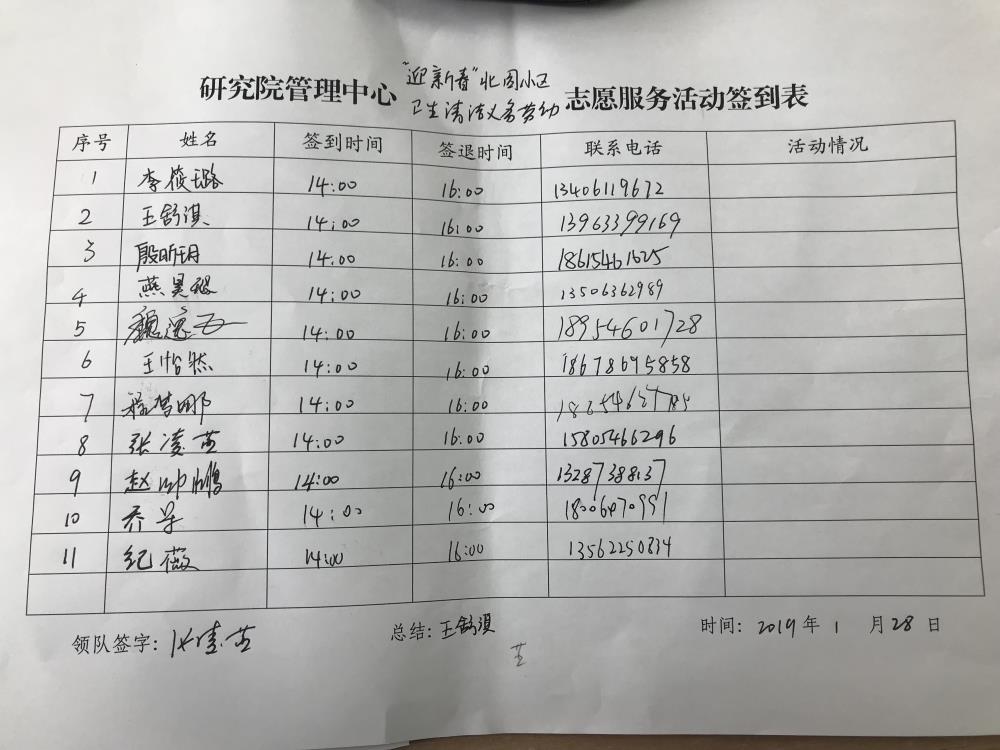 研究院管理中心 "迎新春"北园小区卫生清洁义务劳动 志愿服务活动签到表
序号 姓名 签到时间 签退时间 联系电话 活动情况
1 李筱璐 14:00 16:00 13406119672
2 王舒淇 14:00 16:00 13963399169
3 殷昕玥 14:00 16:00 18615461625
4 燕昊 14:00 16:00 13506362989
5 魏逸 14:00 16:00 18954601728
6 王怡然 14:00 16:00 18678695858
7 14:00 16:00
8 张凌芝 14:00 16:00 15805466296
9 赵帅鹏 14:00 16:00 13287388137
10 乔 14:00 16:00
11 纪薇 14:00 16:00 13562250834
领队签字: 总结: 王舒淇 时间: 2019 年 1 月 28 日